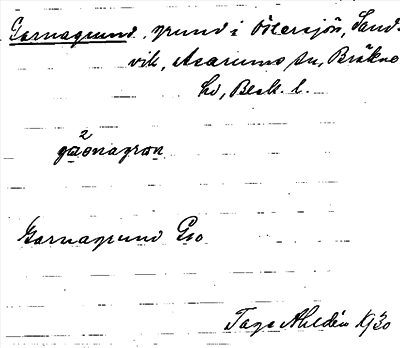 Garnagrund, grund i Östersjön, Sand-
vik, Asarums sn, Bräkne
hd, Blek. l.
Garnagrund Gso
Tage Ahldén Kj 30